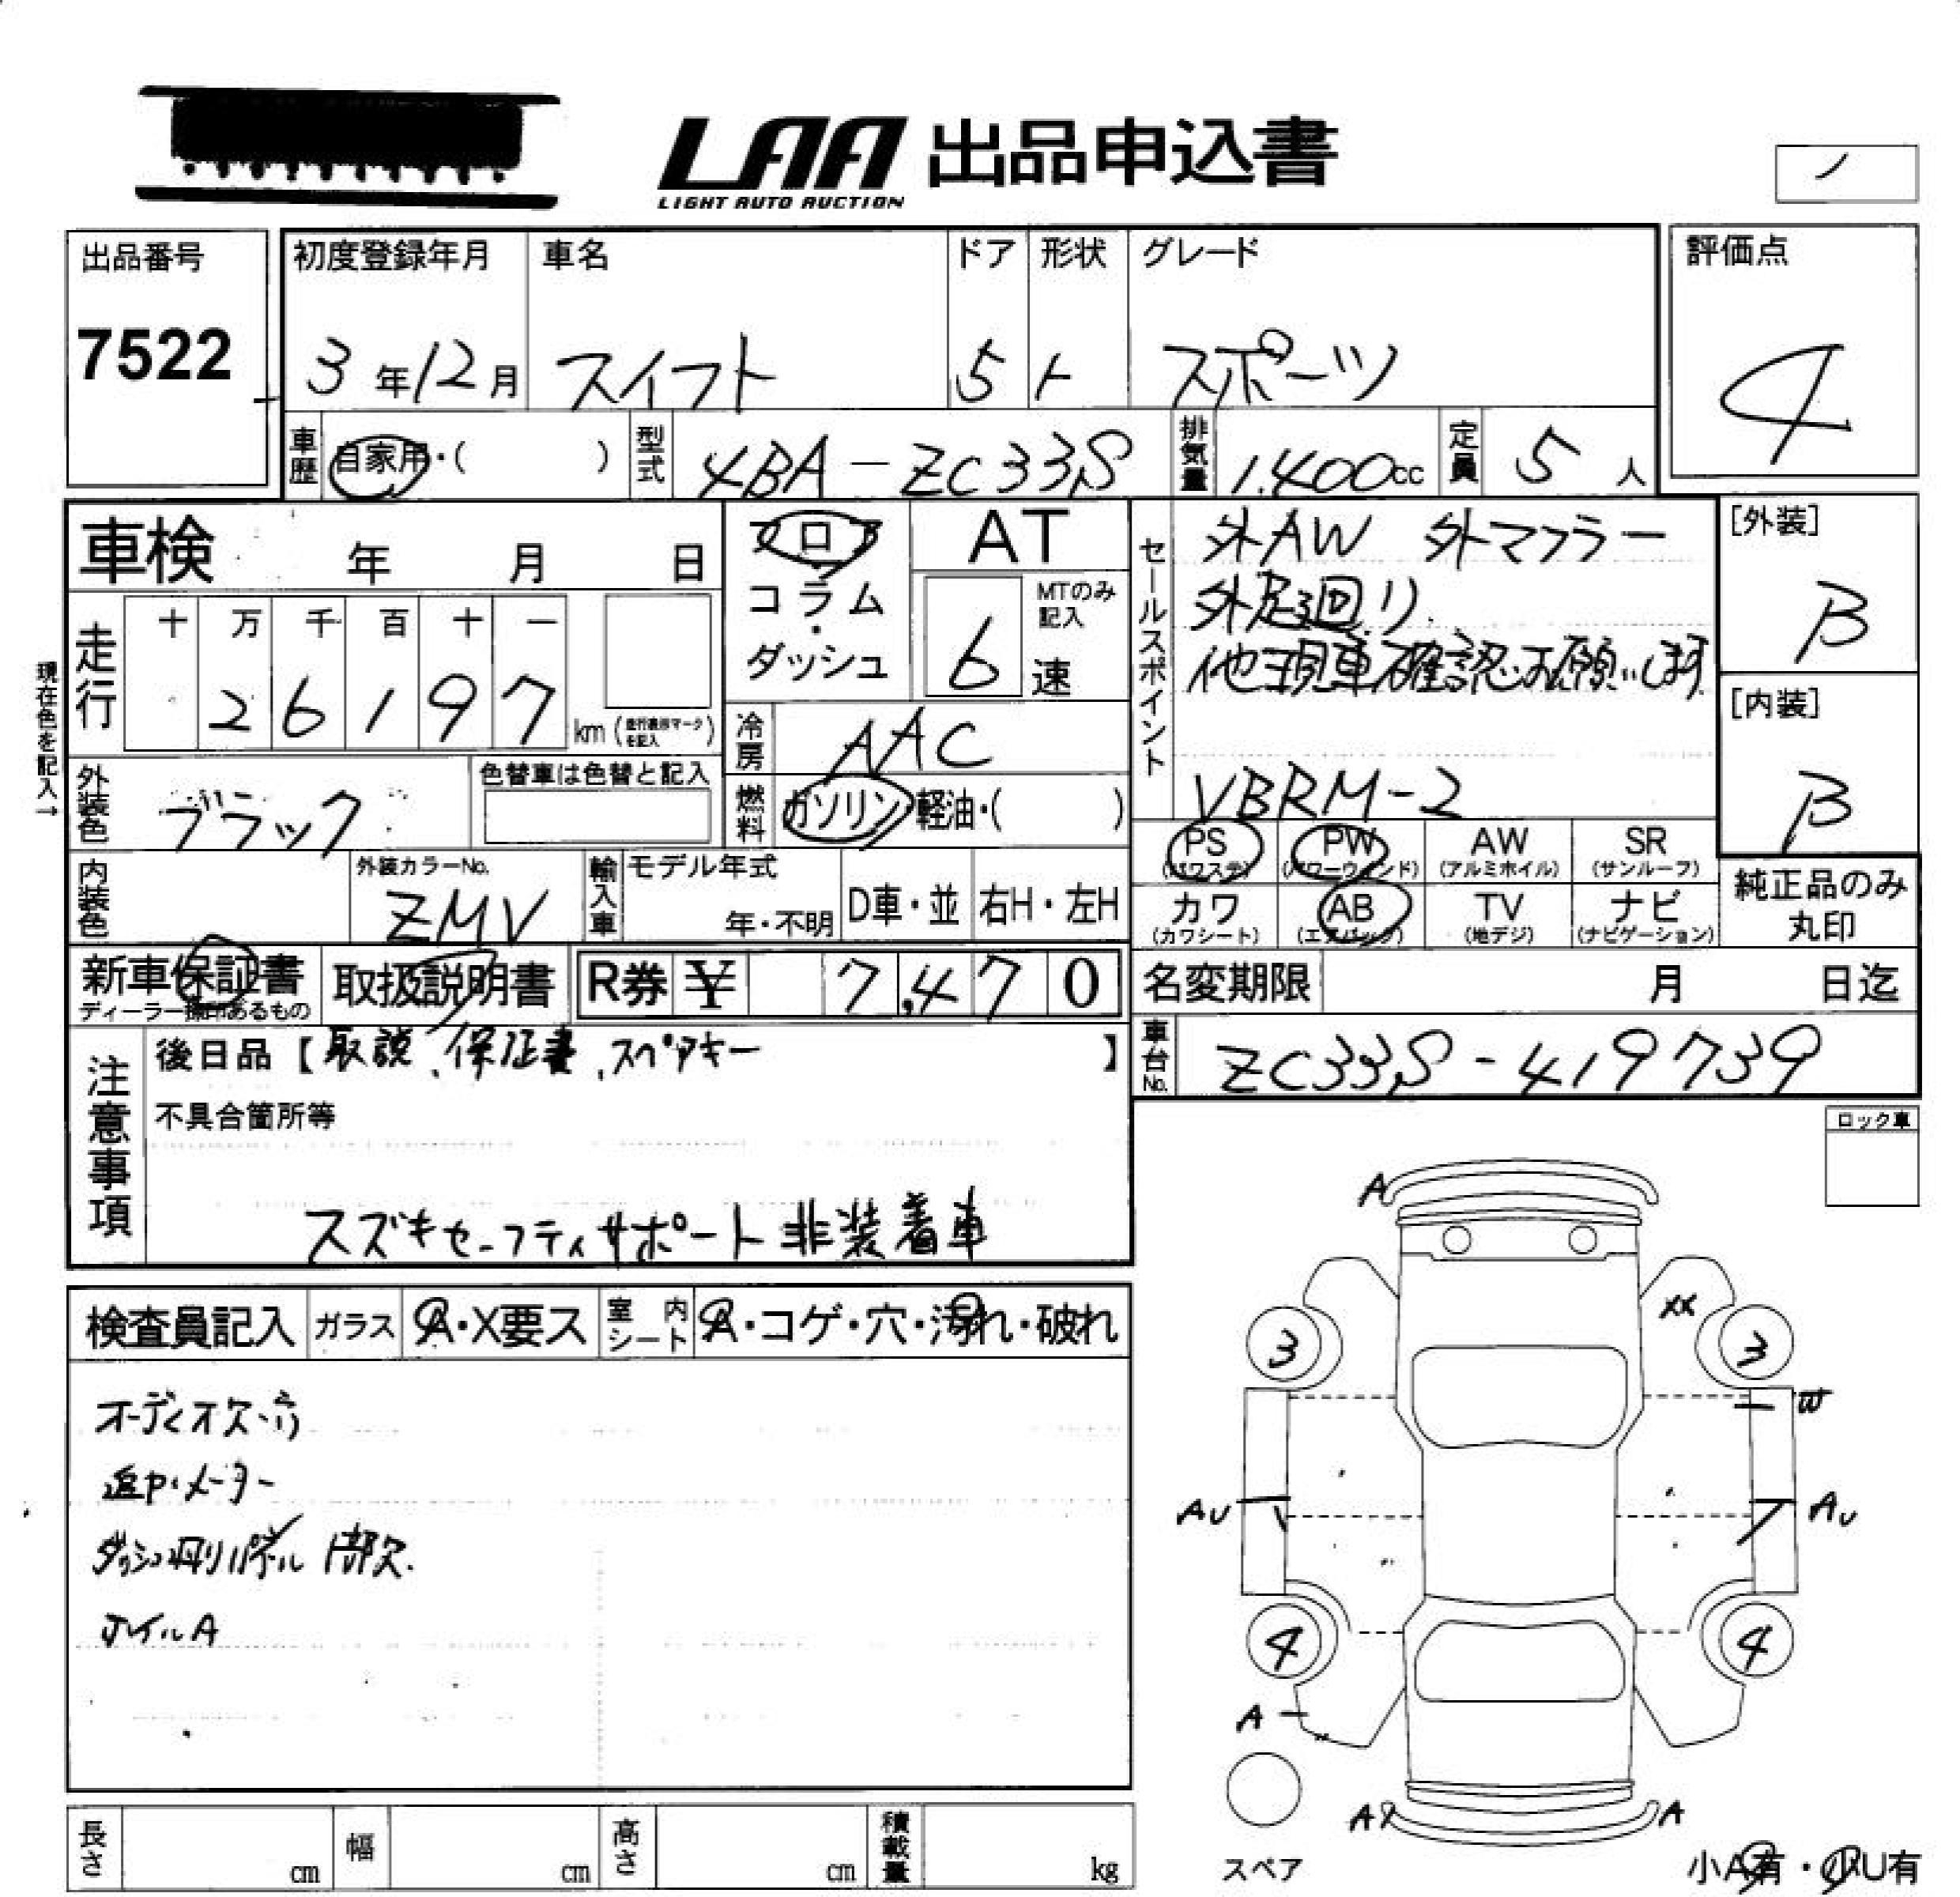 LAA 出品申込書
LIGHT AUTO AUCTION
出品番号
7522
初度登録年月 車名 ドア 形状 グレード
3年12月 スイフト 5 ト スポーツ
評価点
4
車歴 自家用・( ) 型式 4BA-ZC33S 排気量 1.400cc 定員 5人
車検 年 月 日
走行 十 万 千 百 十 一
2 6 1 9 7 km (走行表示マークを記入)
現在色を記入→
外装色 ブラック 色替車は色替と記入
内装色 外装カラーNo. ZMV
フロア
コラム・ダッシュ
AT
MTのみ記入
6 速
冷房 AAC
燃料 ガソリン・軽油・( )
輸入車 モデル年式 年・不明 D車・並 右H・左H
セールスポイント
外AW 外マフラー
外足回り
他現車確認お願いします
VBRM-2
[外装]
B
[内装]
B
PS (パワステ) PW (パワーウインド) AW (アルミホイル) SR (サンルーフ)
カワ (カワシート) AB (エアバック) TV (地デジ) ナビ (ナビゲーション)
純正品のみ丸印
新車保証書 ディーラー捺印あるもの 取扱説明書 R券 ¥ 7,470
名変期限 月 日迄
車台No. ZC33S-419739
注意事項
後日品【取説、保証書、スペアキー】
不具合箇所等
スズキセーフティサポート非装着車
ロック車
検査員記入 ガラス A・X要ス 室内シート A・コゲ・穴・汚れ・破れ
オーディオ欠・穴
追P・メーター
ダッシュ廻りパネル 1部欠.
ホイルA
A
XX
3 3
W
AU AU
4 4
A
A A
スペア
小A有・小U有
長さ cm 幅 cm 高さ cm 積載量 kg